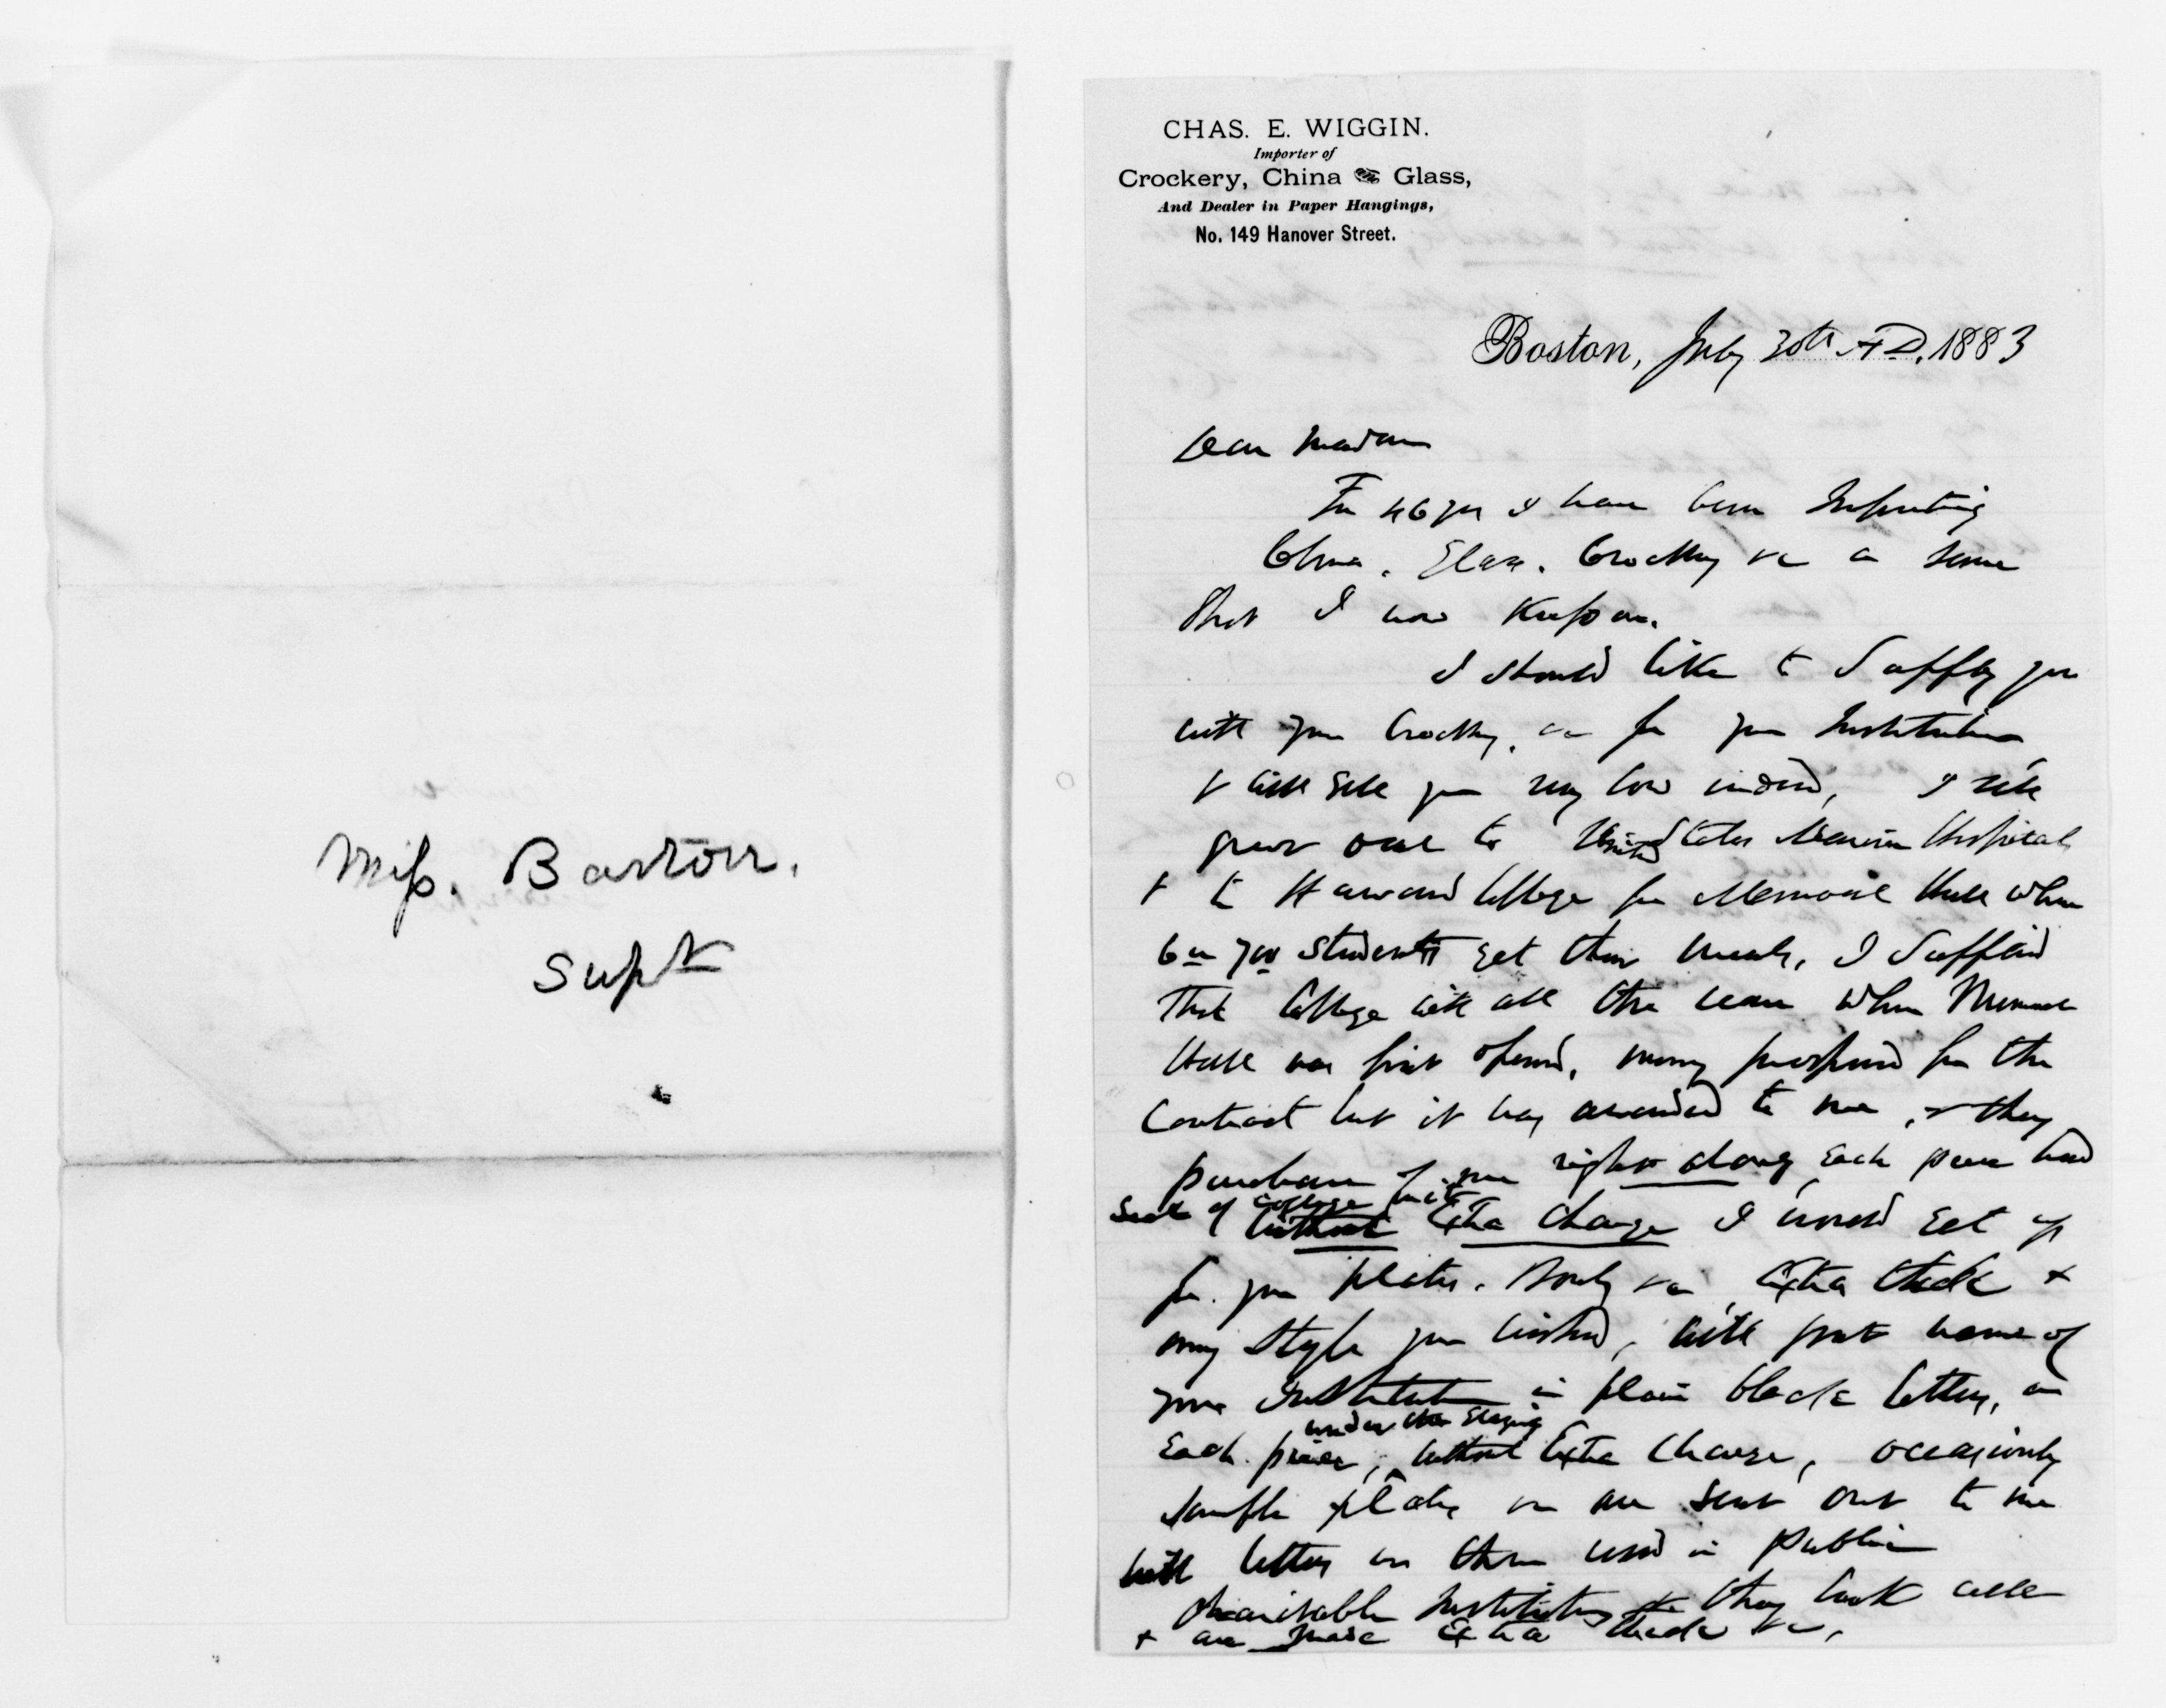 Miss. Barton.
Supt
CHAS. E. WIGGIN.
Importer of
Crockery, China & Glass,
And Dealer in Paper Hangings,
No. 149 Hanover Street.
Boston, July 30th A.D. 1883
Dear Madam
For 46 yrs I have been Importing
China, Glass, Crockery &c in store
that I now Keep on.
I should like to Supply you
with your Crockery, &c for your Institution
& will sell you very low indeed, I sell
great deal to United States Marine Hospital
& to Harvard College for Memorial Hall where
6 or 700 students get their meals, I supplied
that College with all the ware when Memorial
Hall was first opened, many proposed for the
Contract but it was awarded to me, & they
purchase of me right along, each piece had
Seal of College
without Extra Charge I would get up
for you plates, Bowls &c Extra thick &
any style you wished, will put name of
your Institution in plain black letters, on
Each piece, under the glazing without Extra Charge, occasionly
sample plates &c are sent out to me
with letters on them used in Public
charitable Institutions & they look well
& are made Extra thick &c,